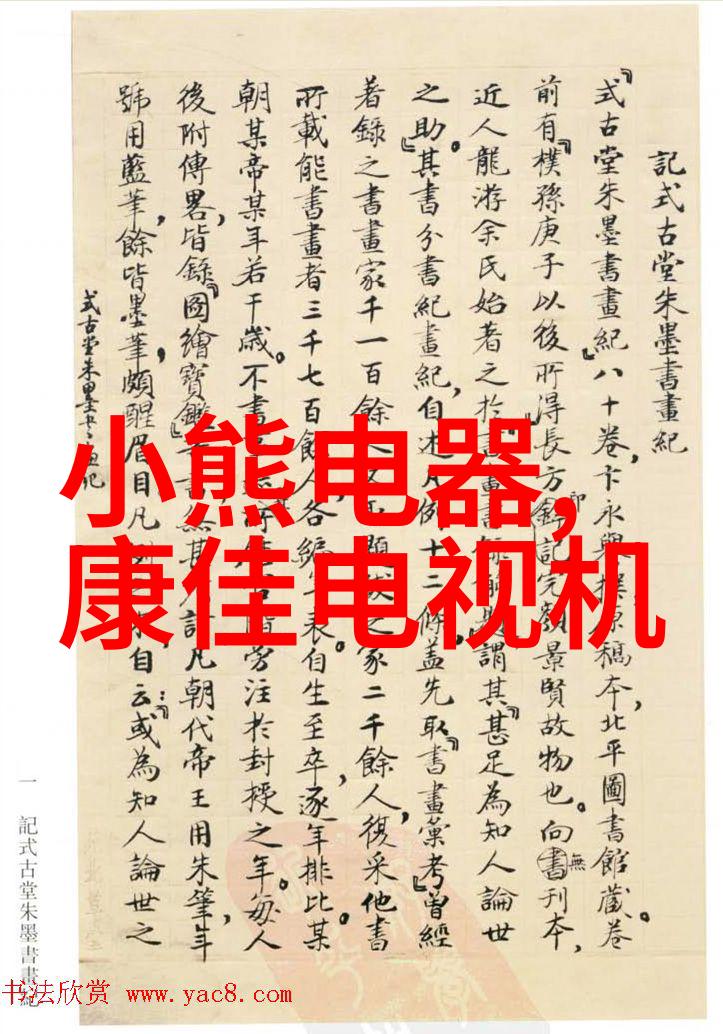 記式古堂朱墨書畫紀
『式古堂朱墨書畫紀』八十卷,卞永與撰原稿本,北平圖書館藏。卷
前有『樸孫庚子以後所得』長方印記完顏景賢故物也。向無刊本,
近人龍游余氏始著之於謂其『甚足為知人論世
之助』。其書分書紀畫紀,自述凡例十二條,蓋先取『書畫彙考』曾經
著錄之書畫家千一百餘之家二千餘人,復采他書
所載能書畫者三千七百餘人,各編年表。自生至卒,逐年排比某
朝某帝某年若干歲。不書旁注於封授之年。每人
後附傳畧,皆錄『圖繪寶鑑』凡朝代帝王用朱筆,年
號用藍筆,餘皆墨筆,頗醒眉目。凡自云:『或為知人論世之
式古堂朱墨書畫紀
一 記式古堂朱墨書畫紀
小熊电器,
康佳电视机
书法欣赏 www.yac8.com